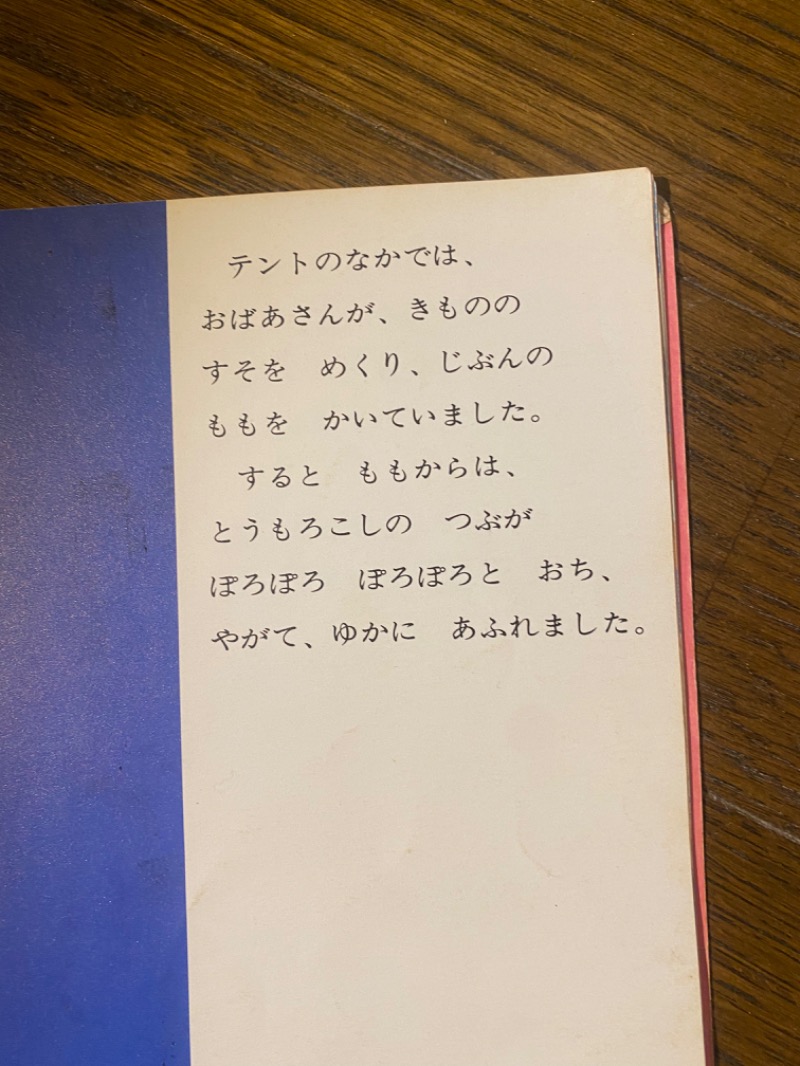 テントのなかでは、
おばあさんが、きものの
すそを　めくり、じぶんの
ももを　かいていました。
　すると　ももからは、
とうもろこしの　つぶが
ぽろぽろ　ぽろぽろと　おち、
やがて、ゆかに　あふれました。